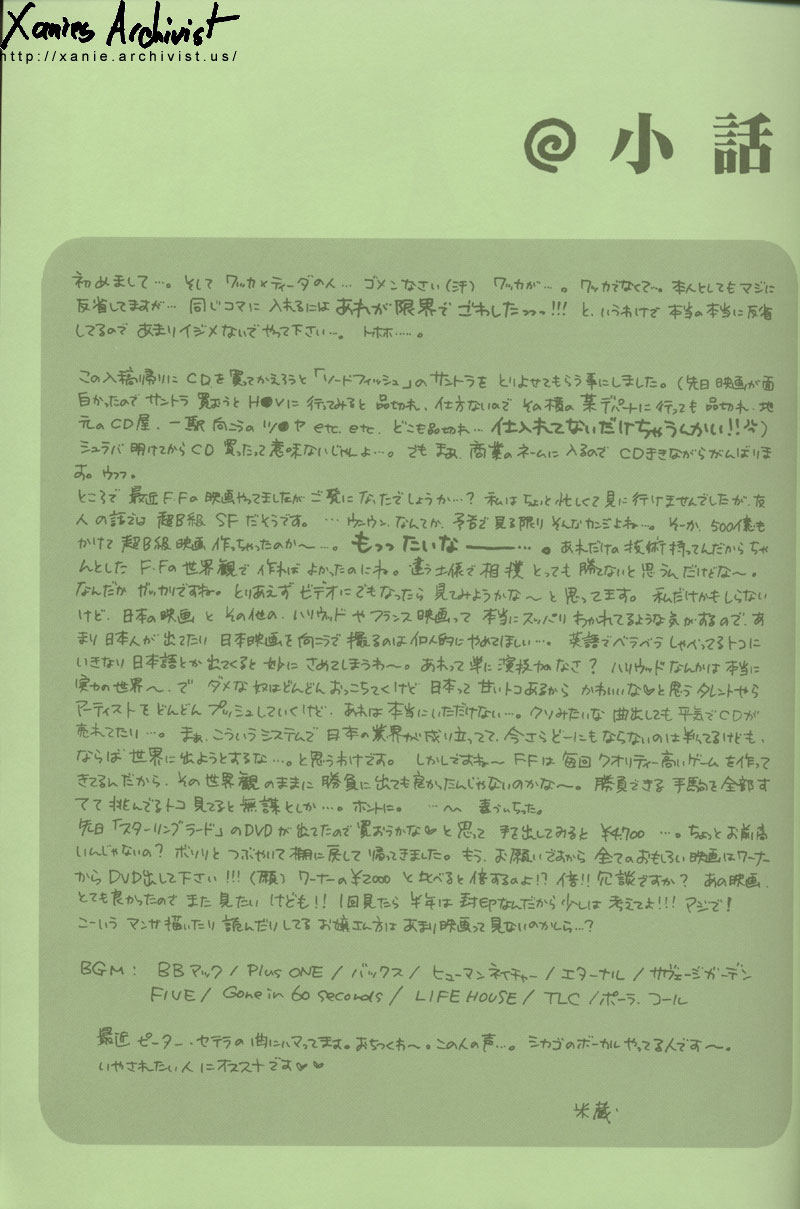 Xanies Archivist
http://xanie.archivist.us/
@小話
初めまして…。そして ワッカ×ティーダの人… ゴメンなさい(汗) ワッカが…。ワッカでなくて…。本人としてもマジに
反省してますが… 同じコマに 入れるには あれが限界で ゴわしたっっっ!!! と、いうわけで 本当の本当に反省
してるので あまりイジメないでやって下さい…。 トホホ……。
この入稿帰りに CDを買ってかえろうと「ソードフィッシュ」のサントラを とりよせてもらう事にしました。(先日 映画が面
白かったので サントラ 買おうと H●Vに行ってみると 品切れ、仕方ないので その横の某デパートに行っても 品切れ、地
元のCD屋、一駅向こうの ツ●ヤ etc. etc. どこも品切れ… 仕入れてないだけちゃうんかい!!)
シュラバ明けてからCD 買ったって意味ないじゃんよ…。でも まぁ、商業のネームに入るので CDききながらがんばりま
す。ウフフ。
ところで 最近FFの映画やってましたが ご覧になったでしょうか…? 私はちょっと忙しくて見に行けませんでしたが、友
人の話では 超B級 SFだそうです。 …ウンウン、なんてか、予告で見る限り そんなカンジよね…。そーか、500億も
かけて 超B級映画 作っちゃったのか〜…。 もっったいな———…。あれだけの技術持ってんだからちゃ
んとした F.Fの世界観で 作れば よかったのにね。違う土俵で相撲 とっても 勝てないと思うんだけどな〜。
なんだか ガッカリですね。とりあえず ビデオにでもなったら 見てみようかな〜と思ってます。私だけかもしらない
けど、日本の映画と その他の、ハリウッドやフランス映画って 本当にスッパリわかれてるような気がするので、あ
まり日本人が出てたり 日本映画を向こうで 撮るのは個人的にやめてほしい…。 英語でベラベラ しゃべってるトコに
いきなり日本語とか出てくると 妙に さめてしまうわ〜。あれって単に演技力のなさ? ハリウッドなんかは本当に
実力の世界〜、で ダメな奴はどんどんおっこちてくけど 日本って甘いトコあるから かわいいな♡と思う タレントやら
アーティストを どんどん プッシュしていくけど、あれは本当にいただけない…。クソみたいな 曲出しても平気でCDが
売れてたり…。 まぁ、こういうシステムで 日本の業界が成り立ってて、今さらどーにもならないのは判ってるけども、
ならば 世界に出ようとするな…。と思うわけです。 しかしですね〜 FFは毎回 クオリティー高いゲームを作って
きてるんだから、その世界観のままに 勝負に出ても良かったんじゃないのかな〜。 勝負できる 手駒を全部す
てて 挑んでるトコ 見てると 無謀としか…。ホントに。
先日「スターリングラード」のDVDが出てたので買おうかな♡と思って 手を出してみると ¥4700 …。ちょっとお前高
いんじゃないの? ボソリと つぶやいて 棚に戻して帰ってきました。もう、お願いですから 全てのおもしろい映画はワーナー
からDVD出して下さい!!!(願) ワーナーの¥2000 と比べると倍するのよ!? 倍!! 冗談ですか? あの映画、
とても良かったので また見たいけども!! 1回見たら 半年は 封印なんだから 少しは 考えてよ!!! マジで!
こーいう マンガ描いたり 読んだりしてる お嬢さん方は あまり映画って見ないのかしら…?
BGM: BBマック/Plus ONE/バックス/ヒューマンネイチャー/エターナル/サヴェージガーデン
FIVE/Gone in 60 seconds/LIFE HOUSE/TLC/ポーラ.コール
最近 ピーター・セテラの曲にハマってます。おちつくわ〜。この人の声…。シカゴのボーカルやってる人です〜。
いやされたい人 にオススメです♡♡
米蔵.